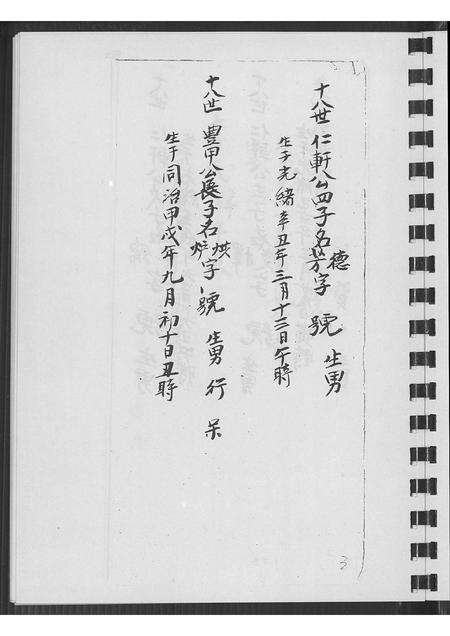 十八世 仁軒公四子名德芳字 號 生男
生于光緒辛丑年三月十三日午時
十八世 豐甲公長子名烘爐字 號 生男 行 呆
生于同治甲戌年九月初十日丑時
3